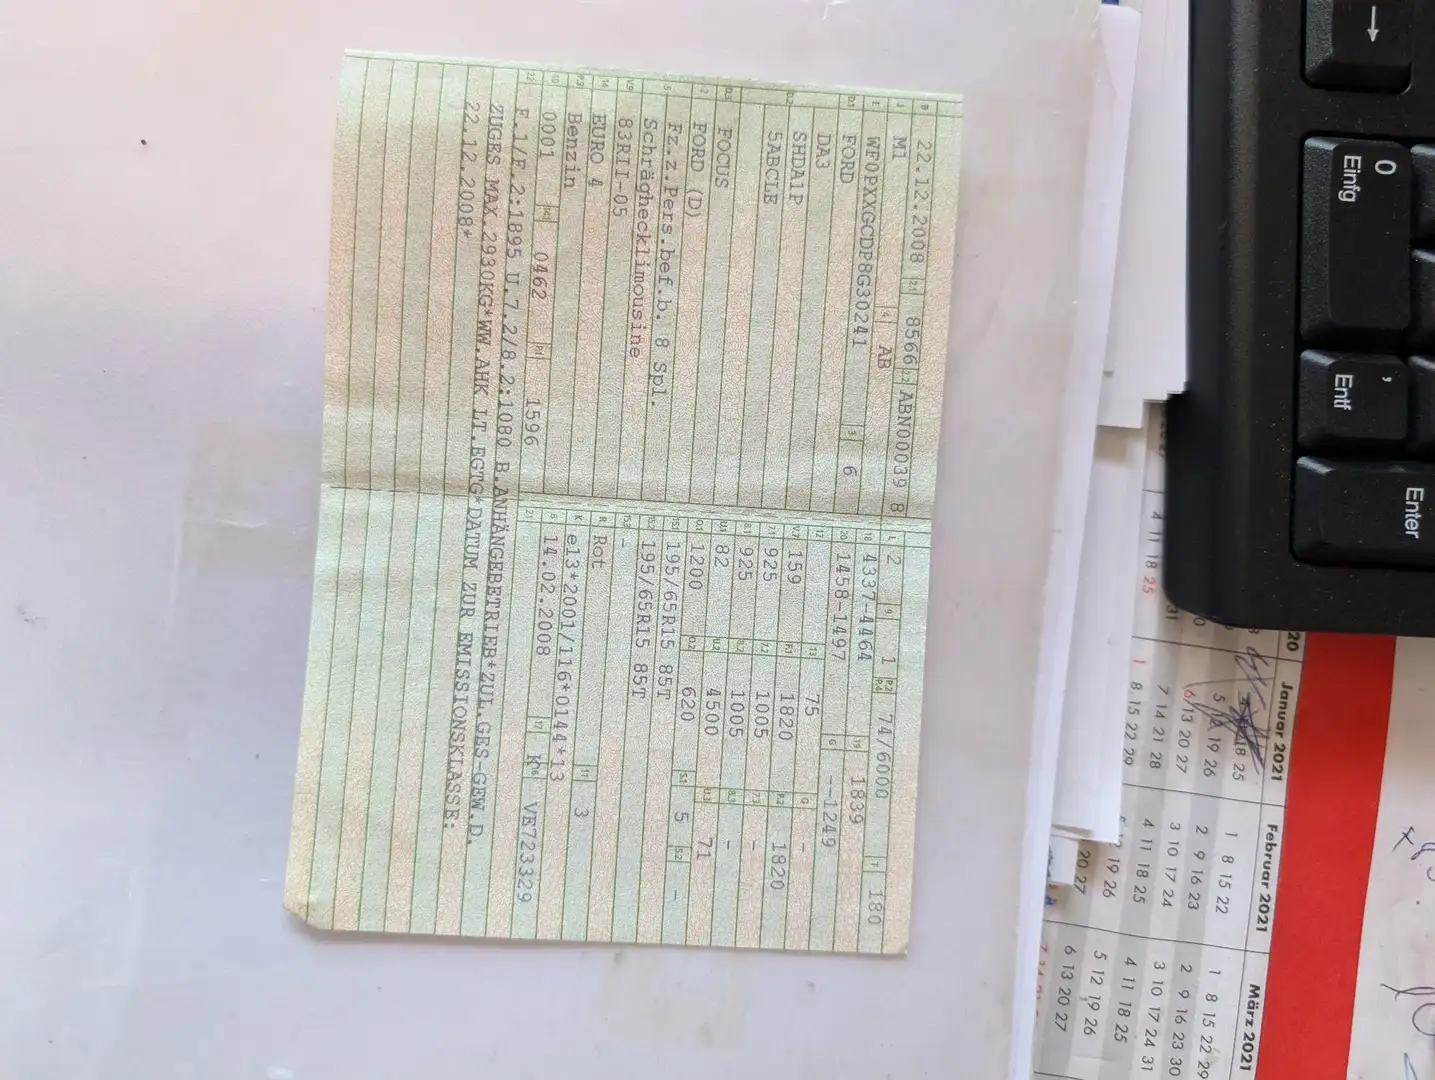 B 22.12.2008 2.1 8566 2.2 ABN00039 8
J M1 4 AB
E WF0PXXGCDP8G30241 3 6
D.1 FORD
DA3
D.2 SHDA1P
5ABCLE
D.3 FOCUS
2 FORD (D)
5 Fz.z.Pers.bef.b. 8 Spl.
Schräghecklimousine
V.9 83RII-05
14 EURO 4
P.3 Benzin
10 0001 14.1 0462 P.1 1596
22 F.1/F.2:1895 U.7.2/8.2:1080 B.ANHÄNGEBETRIEB*ZUL.GES-GEW.D.
ZUGES MAX.2930KG*WW.AHK LT.EGTG*DATUM ZUR EMISSIONSKLASSE:
22.12.2008*
L 2 9 1 P.2 P.4 74/6000 T 180
18 4337-4464 19 1839
20 1458-1497 G --1249
12 13 75 Q -
V.7 159 F.1 1820 F.2 1820
7.1 925 7.2 1005 7.3 -
8.1 925 8.2 1005 8.3 -
U.1 82 U.2 4500 U.3 71
O.1 1200 O.2 620 S.1 5 S.2 -
15.1 195/65R15 85T
15.2 195/65R15 85T
15.3 -
R Rot 11 3
K e13*2001/116*0144*13
6 14.02.2008 17 K 16 VE723329
21
→
0
Einfg
,
Entf
Enter
20
4 11 18 25
31
Januar 2021
18 25
5 19 26
6 13 20 27
7 14 21 28
1 8 15 22 29
Februar 2021
1 8 15 22
2 9 16 23
3 10 17 24
4 11 18 25
19 26
20 27
März 2021
1 8 15 22 29
2 9 16 23 30
3 10 17 24 31
4 11 18 25
5 12 19 26
6 13 20 27